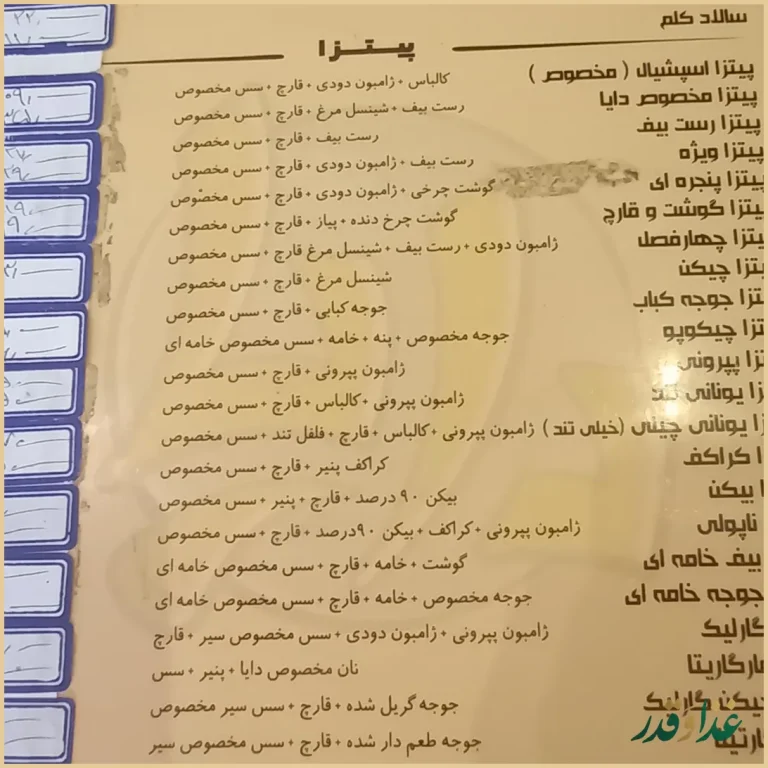 سالاد کلم
پیتزا
پیتزا اسپشیال ( مخصوص ) کالباس + ژامبون دودی + قارچ + سس مخصوص
پیتزا مخصوص دایا رست بیف + شینسل مرغ + قارچ + سس مخصوص
پیتزا رست بیف رست بیف + قارچ + سس مخصوص
پیتزا ویژه رست بیف + ژامبون دودی + قارچ + سس مخصوص
پیتزا پنجره ای گوشت چرخی + ژامبون دودی + قارچ + سس مخصوص
یتزا گوشت و قارچ گوشت چرخ دنده + پیاز + قارچ + سس مخصوص
یتزا چهارفصل ژامبون دودی + رست بیف + شینسل مرغ قارچ + سس مخصوص
بتزا چیکن شینسل مرغ + قارچ + سس مخصوص
تزا جوجه کباب جوجه کبابی + قارچ + سس مخصوص
تزا چیکوپو جوجه مخصوص + پنه + خامه + سس مخصوص خامه ای
زا پپرونی ژامبون پپرونی + قارچ + سس مخصوص
زا یونانی تند ژامبون پپرونی + کالباس + قارچ + سس مخصوص
زا یونانی چیلی (خیلی تند ) ژامبون پپرونی + کالباس + قارچ + فلفل تند + سس مخصوص
ا کراکف کراکف پنیر + قارچ + سس مخصوص
ا بیکن بیکن ۹۰ درصد + قارچ + پنیر + سس مخصوص
ناپولی ژامبون پپرونی + کراکف + بیکن ۹۰درصد + قارچ + سس مخصوص
بیف خامه ای گوشت + خامه + قارچ + سس مخصوص خامه ای
جوجه خامه ای جوجه مخصوص + خامه + قارچ + سس مخصوص خامه ای
گارلیک ژامبون پپرونی + ژامبون دودی + سس مخصوص سیر + قارچ
مارگاریتا نان مخصوص دایا + پنیر + سس
چیکن گارلیک جوجه گریل شده + قارچ + سس سیر مخصوص
جوجه طعم دار شده + قارچ + سس مخصوص سیر
غذا و قدر